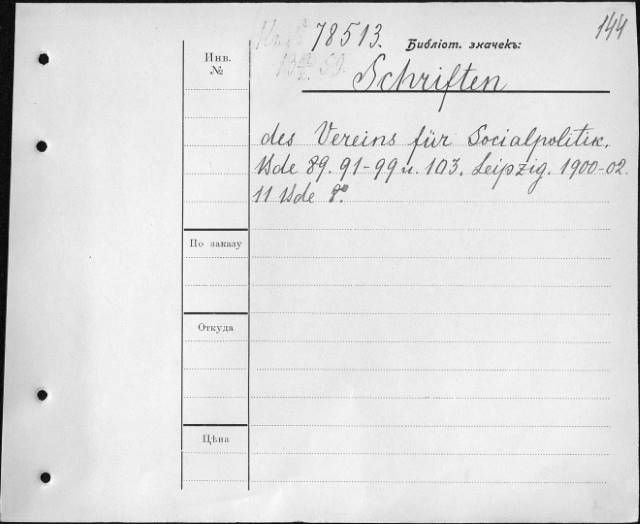 144
78513. Библіот. значекъ:
Инв.
№
Schriften
des Vereins für Socialpolitik.
Bde 89. 91-99 u. 103. Leipzig. 1900-02.
11 Bde 8°.
По заказу
Откуда
Цѣна